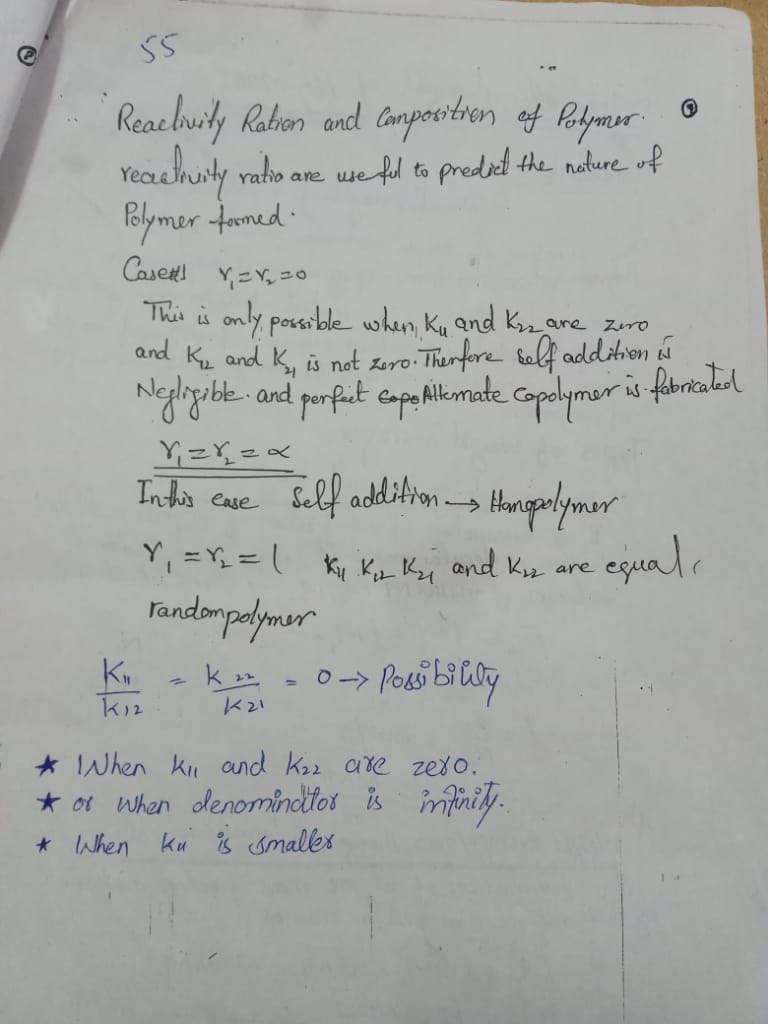 55
Reactivity Ration and Composition of Polymer.
reactivity ratio are useful to predict the nature of
Polymer formed.
Case#1 r₁=r₂=0
This is only possible when, K₁₁ and K₂₂ are zero
and K₁₂ and K₂₁ is not zero. Therefore self addition is
Negligible. and perfect Alternate Copolymer is fabricated
r₁=r₂=∝
In this case Self addition → Homopolymer
r₁=r₂=1 K₁₁ K₁₂ K₂₁ and K₂₂ are equal,
randompolymer
K₁₁/K₁₂ = K₂₂/K₂₁ = 0 → Possibility
★ When K₁₁ and K₂₂ are zero.
★ or when denominator is infinity.
★ When K₁₁ is smaller